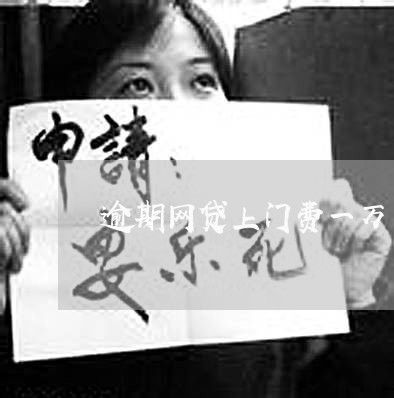 申請：
逾期网贷上门费一万
安乐死